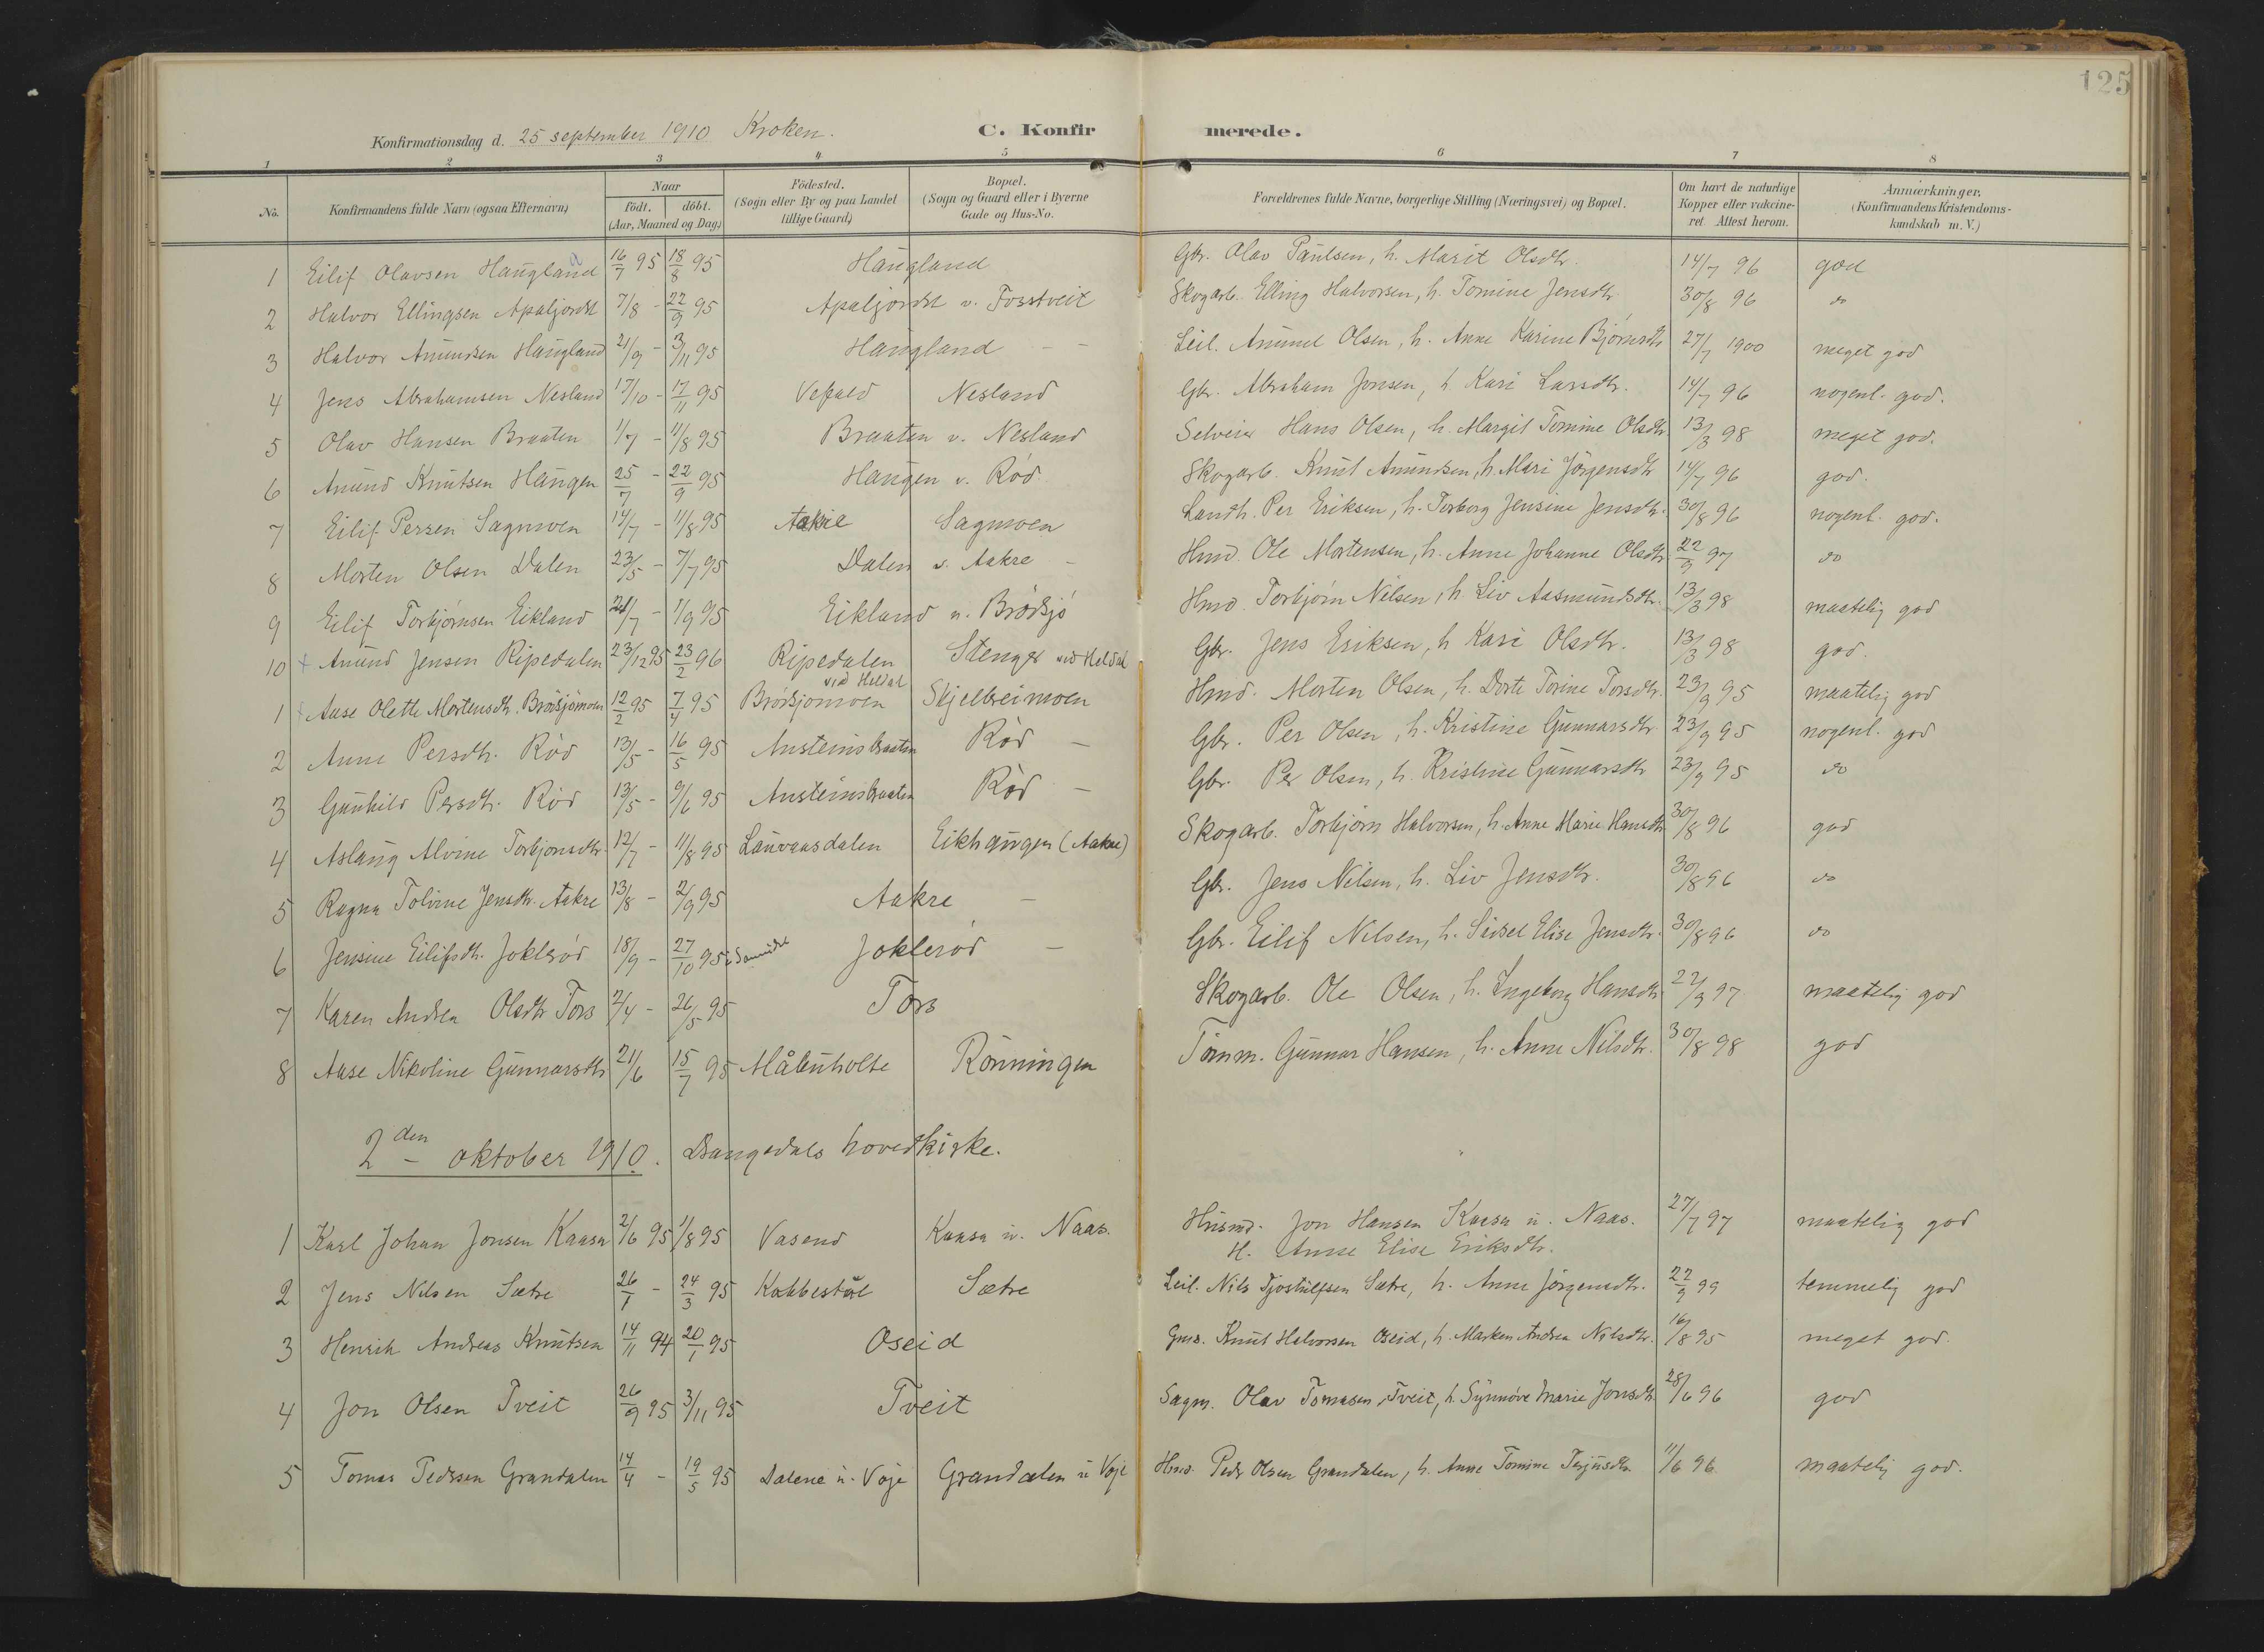 125
Konfirmationsdag d. 25 september 1910 Kroken. C. Konfirmerede.
1 2 3 4 5 6 7 8
No. Konfirmandens fulde Navn (ogsaa Efternavn) Naar födt. döbt. (Aar, Maaned og Dag.) Födested. (Sogn eller By og paa Landet tillige Gaard) Bopæl. (Sogn og Gaard eller i Byerne Gade og Hus-No. Forældrenes fulde Navne, borgerlige Stilling (Næringsvei) og Bopæl. Om havt de naturlige Kopper eller vakcineret. Attest herom. Anmærkninger. (Konfirmandens Kristendomskundskab m. V.)
1 Eilif Olavsen Haugland 16/7 95 18/8 95 Haugland Gbr. Olav Paulsen, h. Marit Olsdtr. 14/7 96 god
2 Halvor Ellingsen Apaljordet 7/8 - 22/9 95 Apaljordet v. Fosstveit Skogarb. Elling Halvorsen, h. Tomine Jensdtr. 30/8 96 do
3 Halvor Amundsen Haugland 21/9 - 3/11 95 Haugland - - Leil. Amund Olsen, h. Anne Karine Bjørnsdtr 27/7 1900 meget god
4 Jens Abrahamsen Nesland 17/10 - 17/11 95 Nesland Gbr. Abraham Jonsen, h. Kari Larsdtr. 14/7 96 nogenl. god.
5 Olav Hansen Braaten 1/7 - 11/8 95 Braaten v. Nesland Selveier Hans Olsen, h. Margit Tomine Olsdtr. 13/3 98 meget god.
6 Amund Knutsen Haugen 25/7 - 22/9 95 Haugen v. Rød Skogarb. Knut Amundsen, h. Mari Jörgensdtr 14/7 96 god.
7 Eilif Persen Sagmoen 14/7 - 11/8 95 Aakre Sagmoen Landh. Per Eriksen, h. Torborg Jensine Jensdtr. 30/8 96 nogenl. god.
8 Morten Olsen Dalen 23/5 - 7/7 95 Dalen v. Aakre - Hmd. Ole Mortensen, h. Anne Johanne Olsdtr. 22/9 97 do
9 Eilif Torbjörnsen Eikland 21/7 - 1/9 95 Eikland u. Brødsjö Hmd. Torbjørn Nilsen, h Liv Aasmundsdtr. 13/3 98 maatelig god
10 + Amund Jensen Ripedalen 23/12 95 23/2 96 Ripedalen vid Heldal Stenger vid Heldal Gbr. Jens Eriksen, h Kari Olsdtr. 13/3 98 god.
1 Aase Olette Mortensdtr. Brödsjömoen 12/2 95 7/4 95 Brödsjömoen Skjelbreimoen Hmd. Morten Olsen, h. Dorte Torine Torsdtr. 23/9 95 maatelig god
2 Anne Persdtr. Röd 13/5 - 16/5 95 Austeinsbraaten Röd - Gbr. Per Olsen, h. Kristine Gunnarsdtr. 23/9 95 nogenl. god
3 Gunhild Persdtr. Röd 13/5 - 9/6 95 Austeinsbraaten Röd - Gbr. Per Olsen, h. Kristine Gunnarsdtr 23/9 95 do
4 Aslaug Alvine Torbjonsdtr. 12/7 - 11/8 95 Lauvaasdalen Eikhaugen (Aakre) Skogarb. Torbjörn Halvorsen, h. Anne Marie Hansdtr 30/8 96 god
5 Ragna Tolvine Jensdtr. Aakre 13/8 - 2/9 95 Aakre - Gbr. Jens Nilsen, h. Liv Jensdtr. 30/8 96 do
6 Jensine Eilifsdtr. Jokleröd 18/9 - 27/10 95 Jokleröd - Gbr. Eilif Nilsen, h. Sidsel Elise Jensdtr. 30/8 96 do
7 Karen Andrea Olsdtr Tors 2/4 - 26/5 95 Tors Skogarb. Ole Olsen, h. Ingeborg Hansdtr 22/9 97 maatelig god
8 Aase Nikoline Gunnarsdtr 21/6 15/7 95 Målenholte Rönningen Tömm. Gunnar Hansen, h. Anne Nilsdtr. 30/8 98 god
2den - oktober 1910. Drangedals hovedkirke.
1 Karl Johan Jonsen Kaasa 2/6 95 1/8 95 Vasend Kaasa u. Naas. Husmd. Jon Hansen Kaasa u. Naas. 27/7 97 maatelig god
H. Anne Elise Eriksdtr.
2 Jens Nilsen Sætre 26/1 - 24/3 95 Kabbestöl Sætre Leil. Nils Tjostulfsen Sætre, h. Anne Jörgensdtr. 22/9 99 temmelig god
3 Henrik Andreas Knutsen 14/11 94 20/1 95 Oseid Gmd. Knut Halvorsen Oseid, h. Marken Andrea Nilsdtr. 16/8 95 meget god.
4 Jon Olsen Tveit 26/9 95 3/11 95 Tveit Sagm. Olav Tomasen Tveit, h. Synnöve Marie Jonsdtr. 28/6 96 god
5 Tomas Pedersen Grandalen 14/4 - 19/5 95 Dalene u. Voje Grandalen u Voje Hmd. Peder Olsen Grandalen, h. Anne Tomine Terjusdtr. 11/6 96 maatelig god.